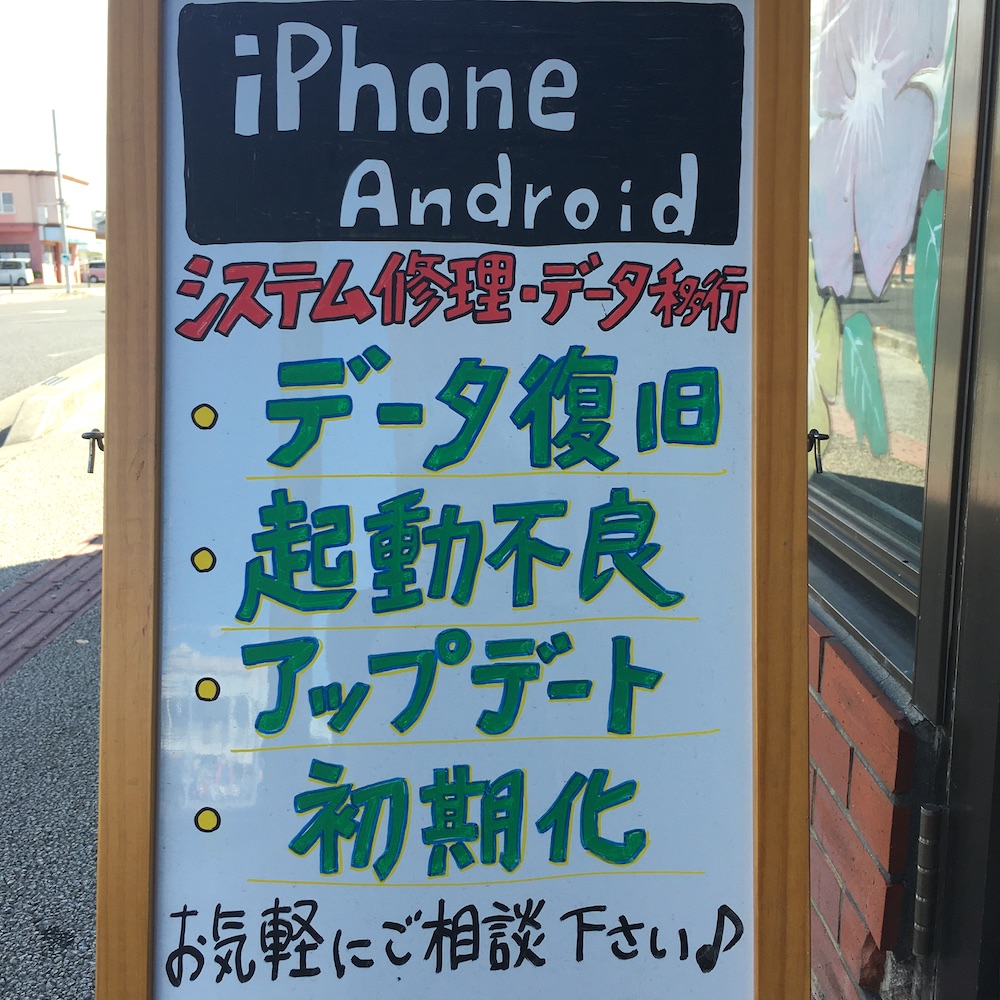 iPhone
Android
システム修理・データ移行
・データ復旧
・起動不良
・アップデート
・初期化
お気軽にご相談下さい♪